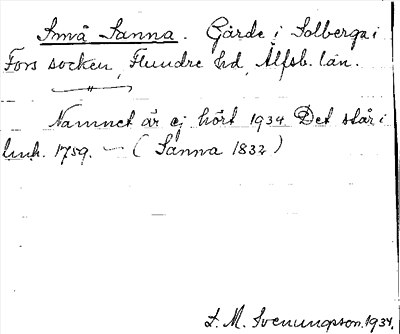 Små Sanna. Gärde i Solberga i
Fors socken, Flundre hd, Älfsb. län.
Namnet är ej hört 1934. Det står i
lmh. 1759. — (Sanna 1832)
L. M. Svenungsson. 1934.